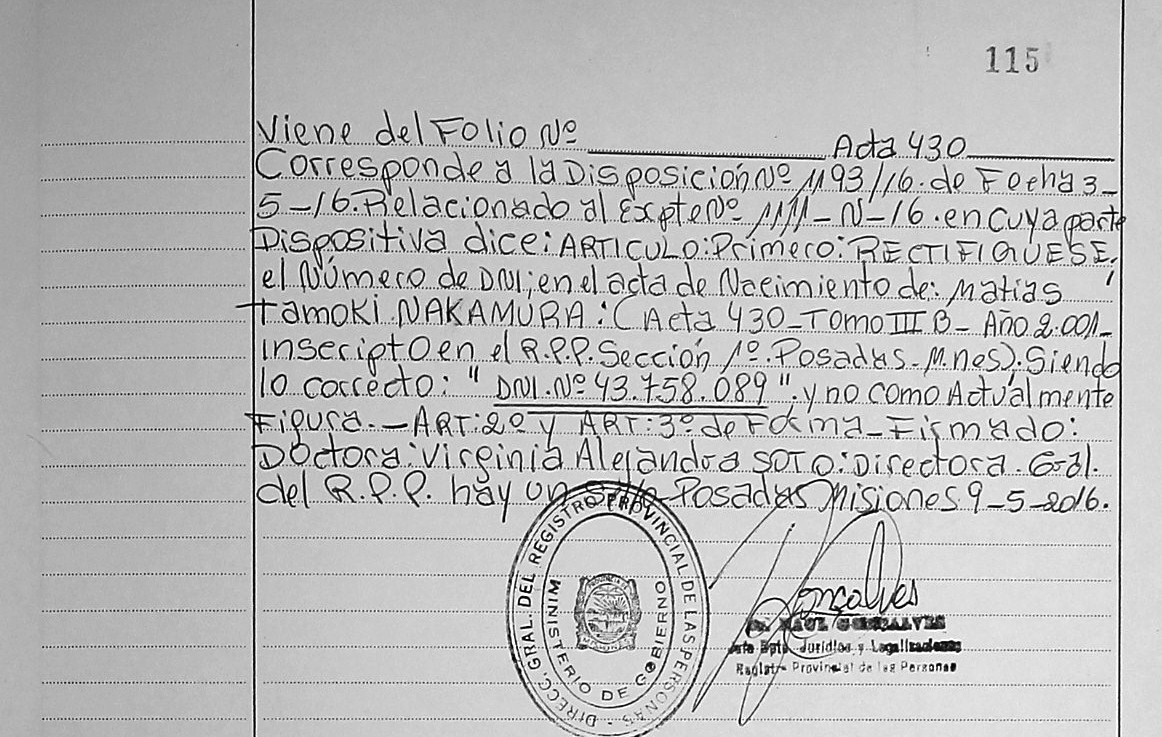 115
Viene del Folio Nº ____________ Acta 430____________
Corresponde a la Disposición Nº 1193/16. de Fecha 3-
5-16. Relacionado al Expte Nº 1111-N-16. en cuya parte
Dispositiva dice: ARTICULO: Primero: RECTIFIQUESE.
el Número de DNI; en el acta de Nacimiento de: Matias
tamoki NAKAMURA: (Acta 430-Tomo III B- Año 2.001-
inscripto en el R.P.P. Sección 1º. Posadas-Mnes). Siendo
lo correcto: " DNI. Nº 43.758.089 ". y no como Actualmente
Figura.-ART: 2º y ART: 3º de Forma-Firmado:
Doctora: Virginia Alejandra SOTO: Directora. Gral.
del R.P.P. hay un Sello Posadas Misiones 9-5-2016.
DIRECC. GRAL. DEL REGISTRO PROVINCIAL DE LAS PERSONAS
MINISTERIO DE GOBIERNO
PROVINCIA DE
MISIONES
Gonçalves
Dr. RAUL GONSALVES
Jefe Dpto. Jurídico y Legalizaciones
Registro Provincial de las Personas